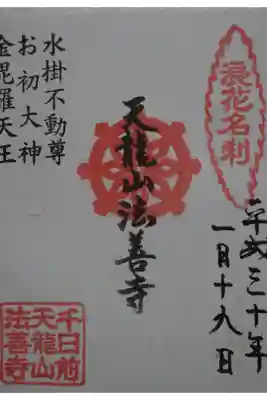 浪花名刹
平成三十年
一月十九日
天龍山法善寺
水掛不動尊
お初大神
金毘羅天王
千日前
天龍山
法善寺